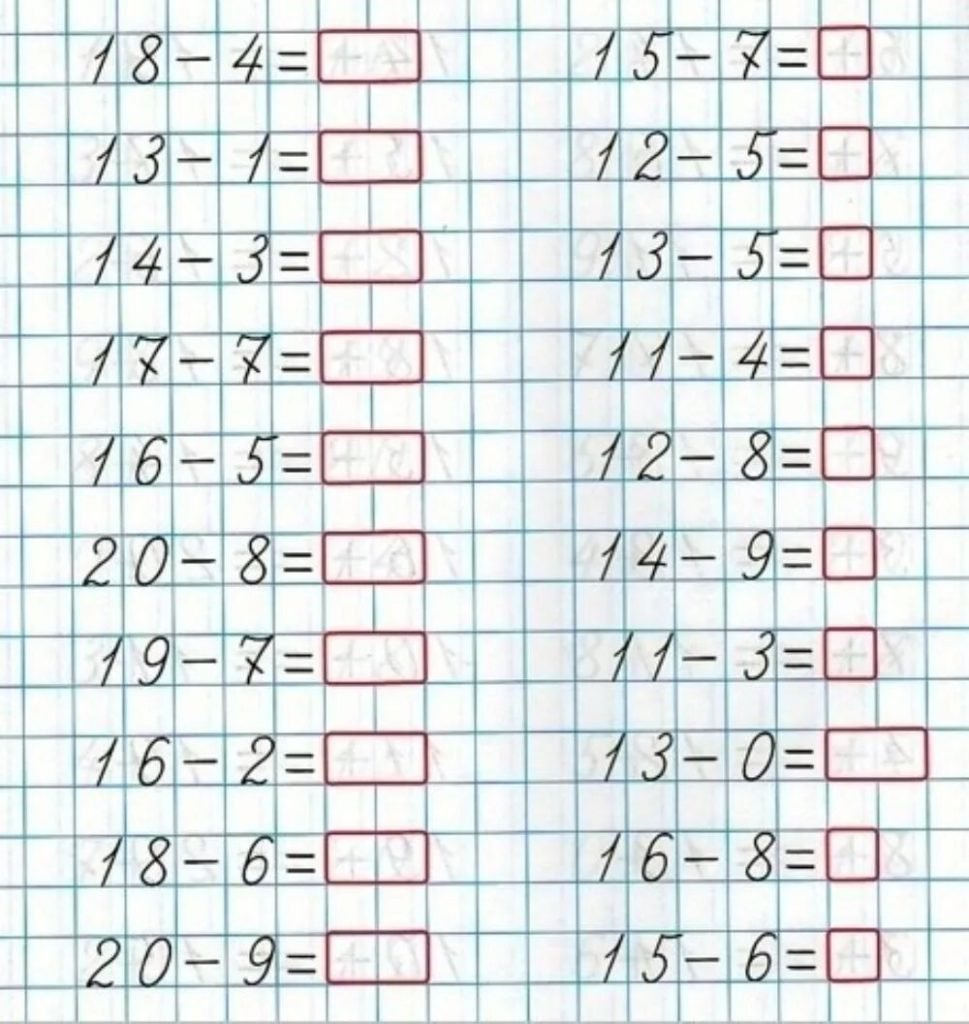 18 - 4 =
13 - 1 =
14 - 3 =
17 - 7 =
16 - 5 =
20 - 8 =
19 - 7 =
16 - 2 =
18 - 6 =
20 - 9 =
15 - 7 =
12 - 5 =
13 - 5 =
11 - 4 =
12 - 8 =
14 - 9 =
11 - 3 =
13 - 0 =
16 - 8 =
15 - 6 =